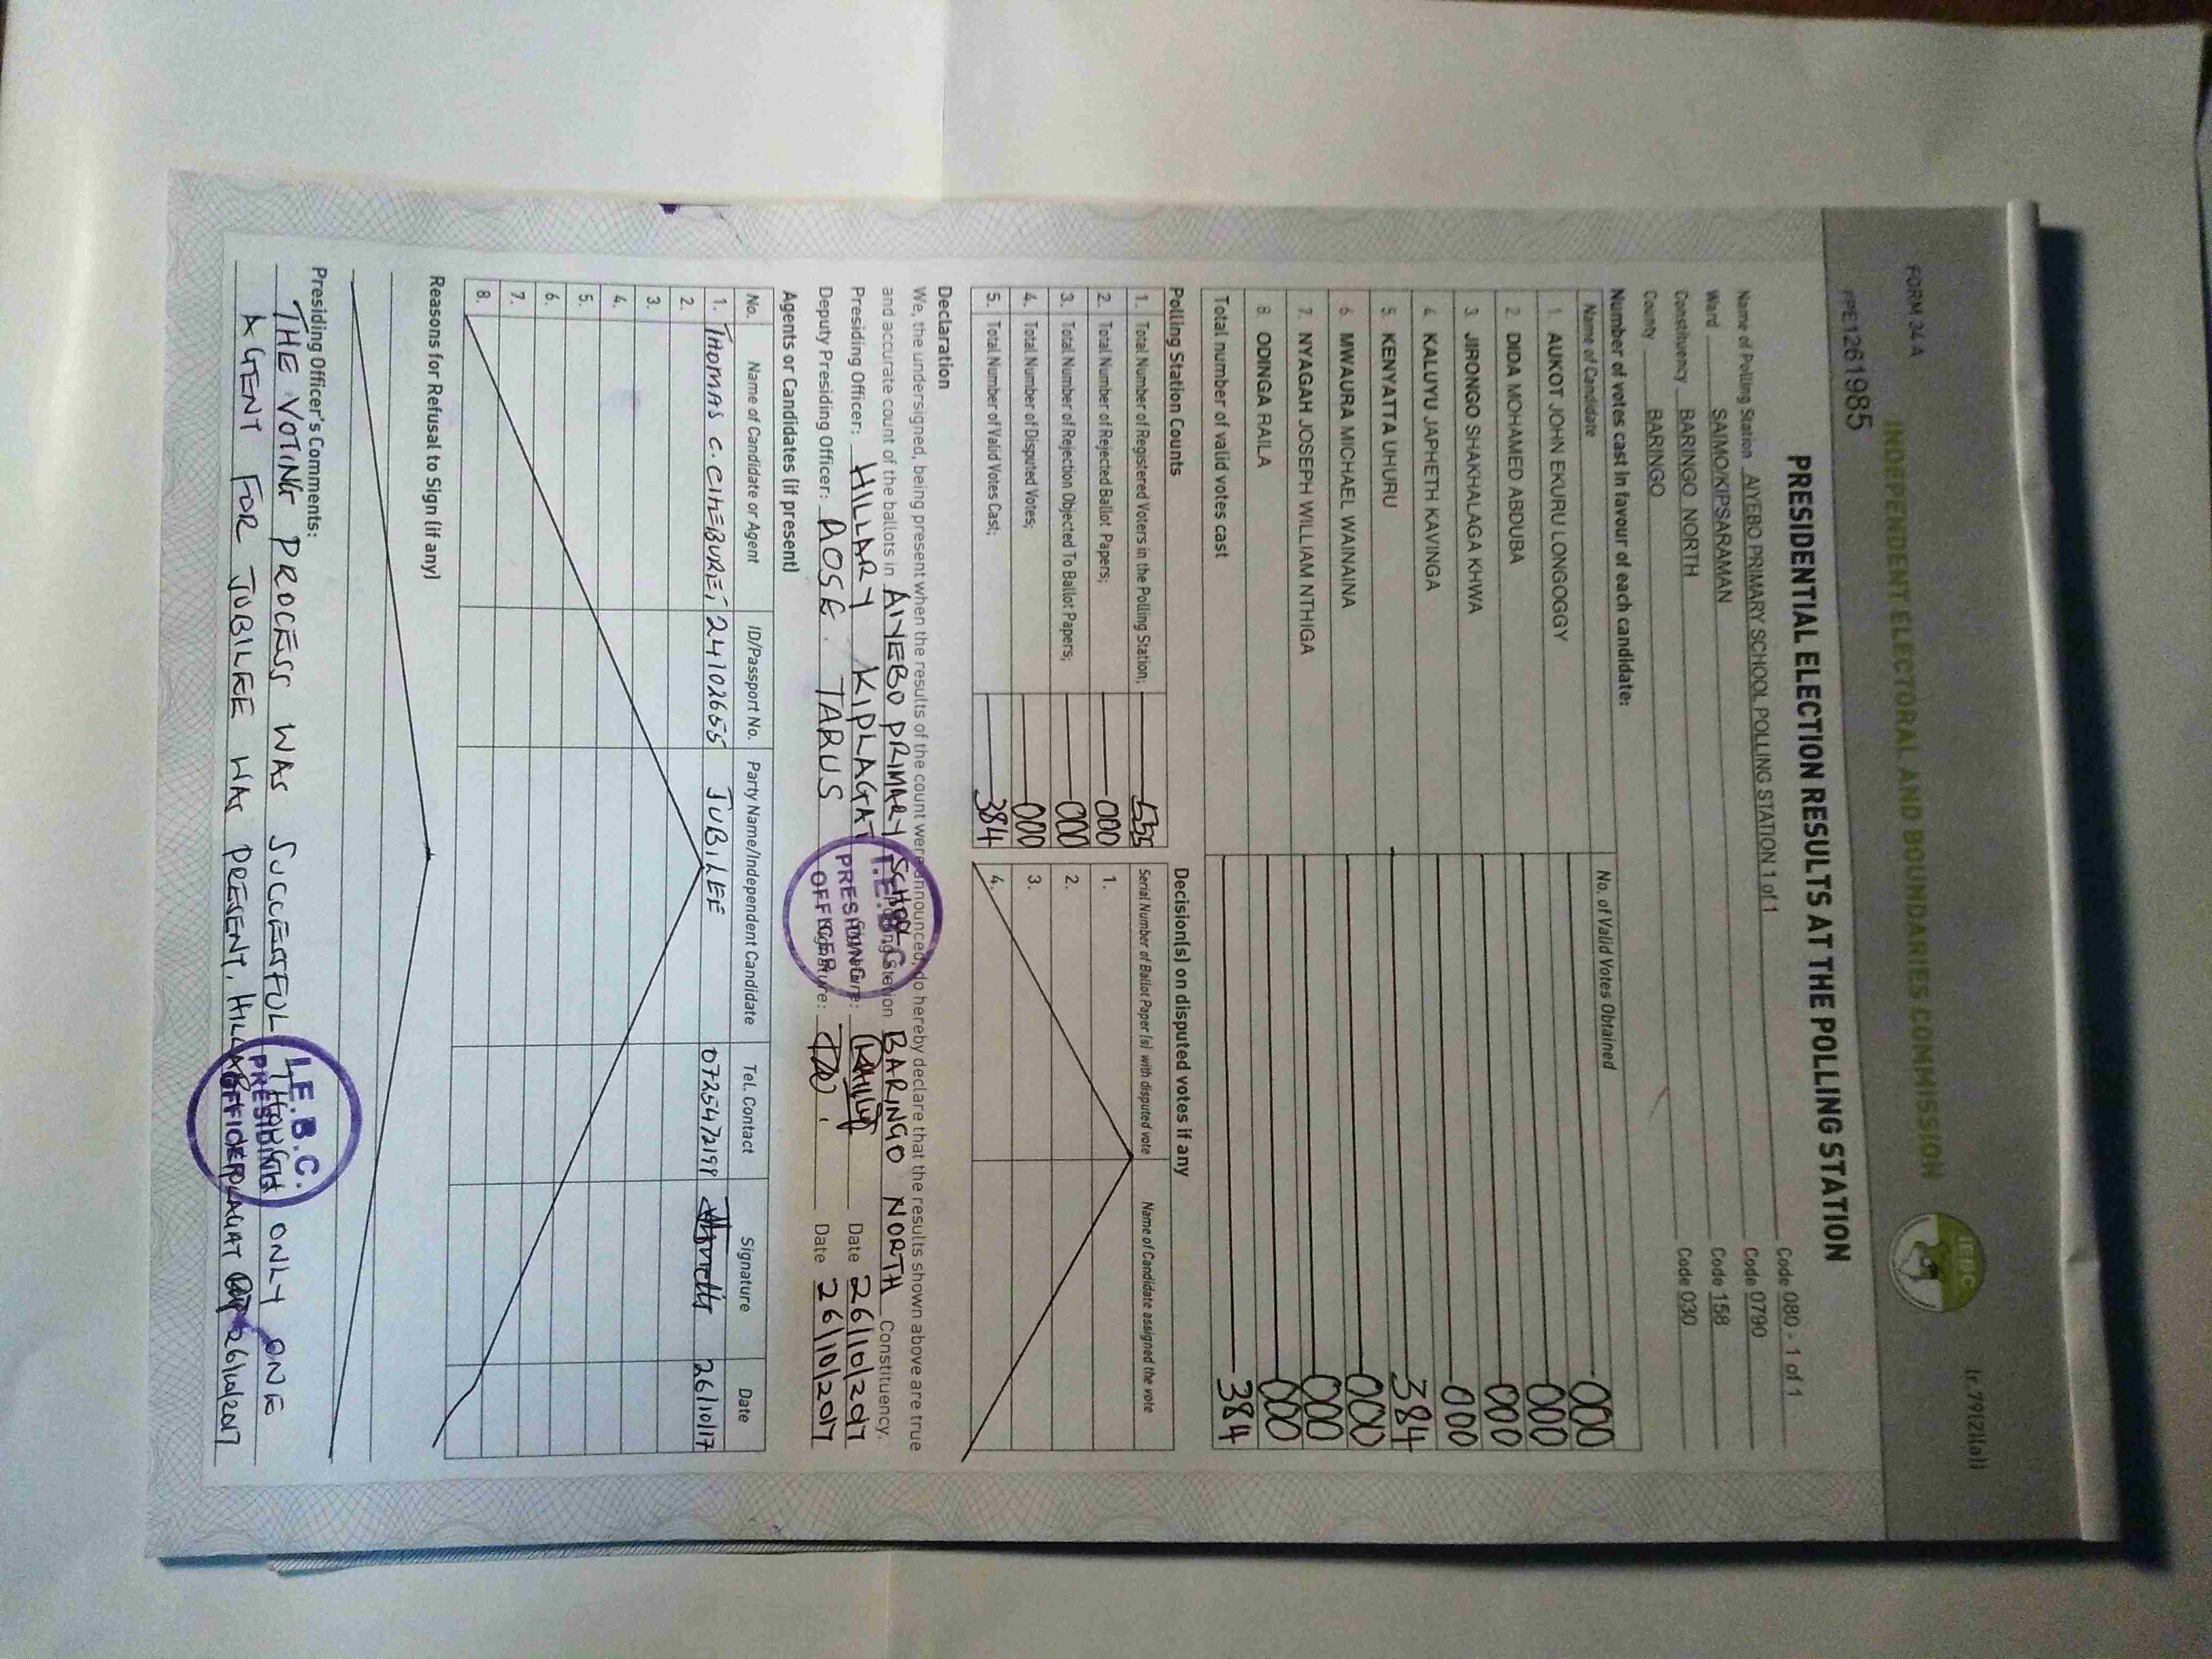 FORM 34 A
INDEPENDENT ELECTORAL AND BOUNDARIES COMMISSION
IEBC
(r.79(2)(a))
PPE1261985
PRESIDENTIAL ELECTION RESULTS AT THE POLLING STATION
Name of Polling Station AIYEBO PRIMARY SCHOOL POLLING STATION 1 of 1 Code 080 - 1 of 1
Ward SAIMO/KIPSARAMAN Code 0790
Constituency BARINGO NORTH Code 158
County BARINGO Code 030
Number of votes cast in favour of each candidate:
Name of Candidate No. of Valid Votes Obtained
1. AUKOT JOHN EKURU LONGOGGY 000
2. DIDA MOHAMED ABDUBA 000
3. JIRONGO SHAKHALAGA KHWA 000
4. KALUYU JAPHETH KAVINGA 000
5. KENYATTA UHURU 384
6. MWAURA MICHAEL WAINAINA 000
7. NYAGAH JOSEPH WILLIAM NTHIGA 000
8. ODINGA RAILA 000
Total number of valid votes cast 384
Polling Station Counts
1. Total Number of Registered Voters in the Polling Station;
2. Total Number of Rejected Ballot Papers; 000
3. Total Number of Rejection Objected To Ballot Papers; 000
4. Total Number of Disputed Votes; 000
5. Total Number of Valid Votes Cast; 384
Decision(s) on disputed votes if any
Serial Number of Ballot Paper (s) with disputed vote Name of Candidate assigned the vote
1.
2.
3.
4.
Declaration
We, the undersigned, being present when the results of the count were announced, do hereby declare that the results shown above are true
and accurate count of the ballots in AIYEBO PRIMARY SCHOOL Polling Station BARINGO NORTH Constituency.
Presiding Officer: HILLARY KIPLAGAT Signature: Date 26/10/2017
Deputy Presiding Officer: ROSE TARUS Signature: Date 26/10/2017
I.E.B.C.
PRESIDING
OFFICER
Agents or Candidates (if present)
No. Name of Candidate or Agent ID/Passport No. Party Name/Independent Candidate Tel. Contact Signature Date
1. THOMAS C. CHEBURET 24102655 JUBILEE 0725472199 26/10/17
2.
3.
4.
5.
6.
7.
8.
Reasons for Refusal to Sign (if any)
Presiding Officer's Comments:
THE VOTING PROCESS WAS SUCCESSFUL ONLY ONE
AGENT FOR JUBILEE WAS PRESENT. HILLARY KIPLAGAT 26/10/2017
I.E.B.C.
PRESIDING
OFFICER